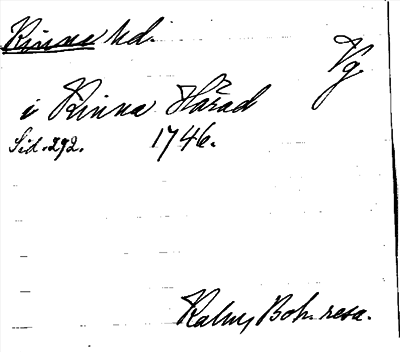 Kinna hd.
Vg
i Kinna Härad
Sid. 292. 1746.
Kalm, Boh. resa.